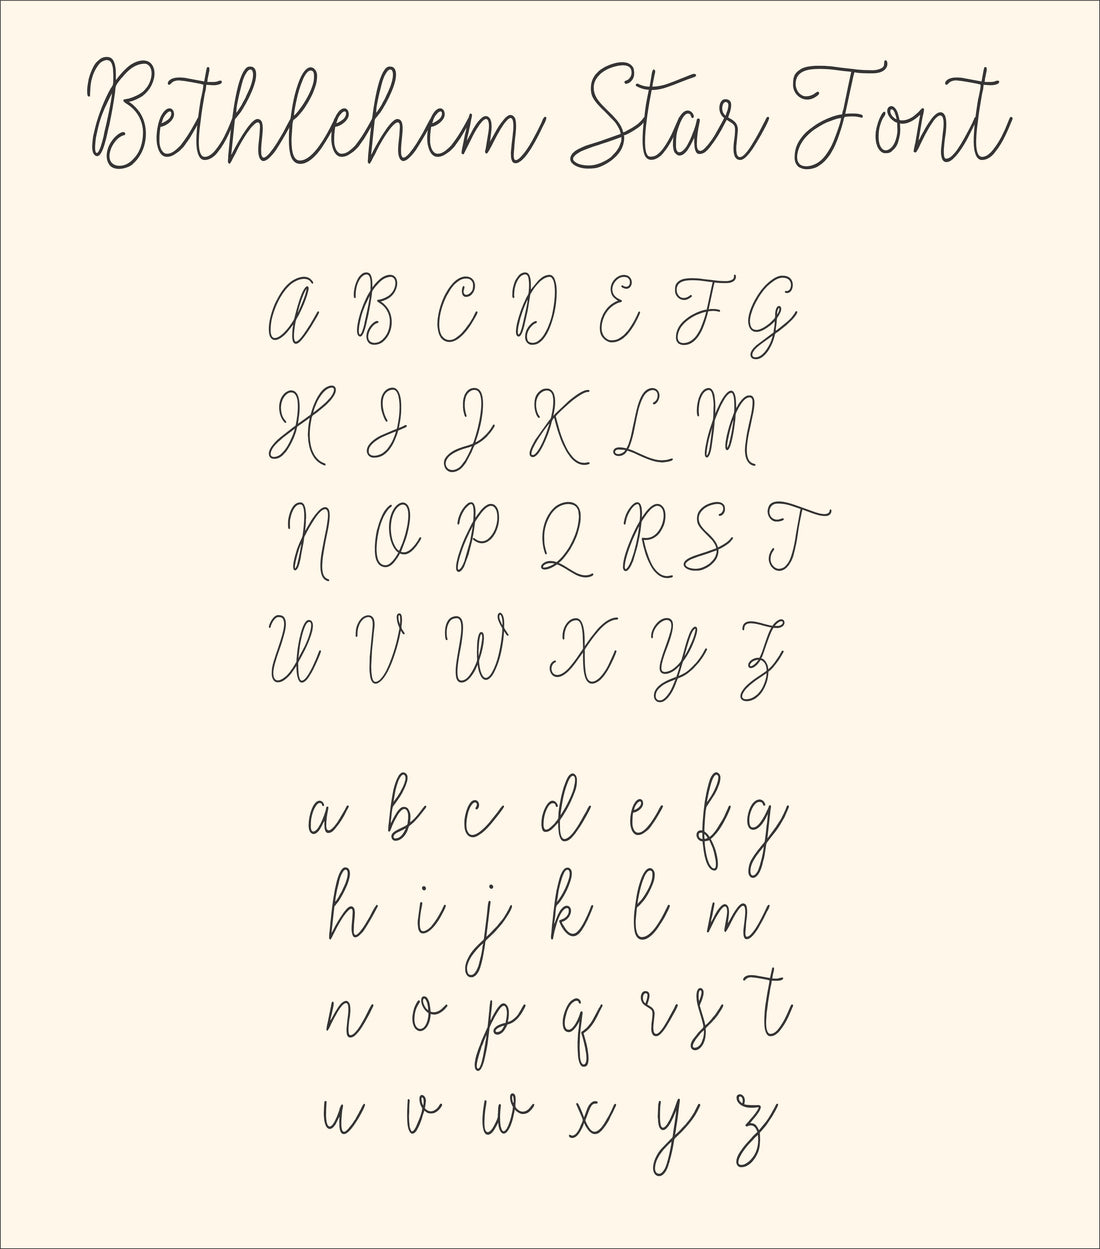 Bethlehem Star Font
A B C D E F G
H I J K L M
N O P Q R S T
U V W X Y Z
a b c d e f g
h i j k l m
n o p q r s t
u v w x y z